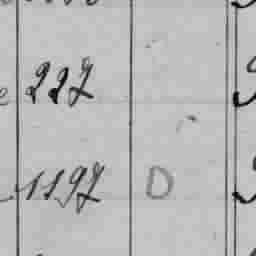 227
1197 D